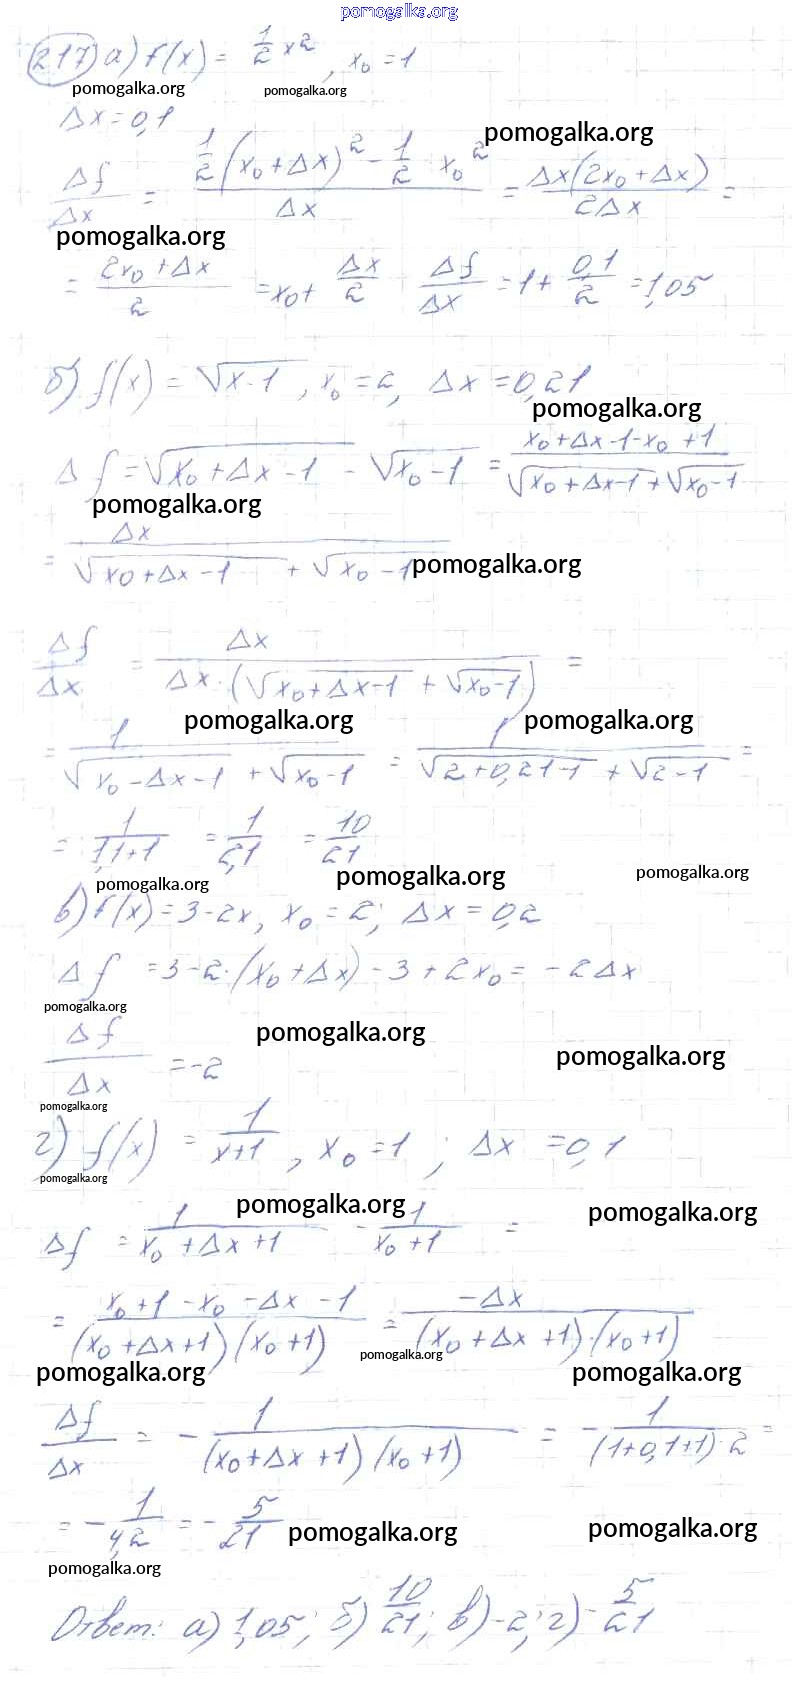 pomogalka.org
217) а) f(x) = 1/2 x², x₀ = 1
pomogalka.org pomogalka.org
Δx = 0,1
pomogalka.org
Δf/Δx = (1/2 (x₀ + Δx)² - 1/2 x₀²)/Δx = Δx(2x₀ + Δx)/2Δx =
pomogalka.org
= (2x₀ + Δx)/2 = x₀ + Δx/2 Δf/Δx = 1 + 0,1/2 = 1,05
б) f(x) = √(x-1), x₀ = 2, Δx = 0,21
pomogalka.org
Δf = √(x₀ + Δx - 1) - √(x₀ - 1) = (x₀ + Δx - 1 - x₀ + 1)/(√(x₀ + Δx - 1) + √(x₀ - 1))
pomogalka.org
= Δx/(√(x₀ + Δx - 1) + √(x₀ - 1))
pomogalka.org
Δf/Δx = Δx/(Δx · (√(x₀ + Δx - 1) + √(x₀ - 1))) =
pomogalka.org pomogalka.org
= 1/(√(x₀ - Δx - 1) + √(x₀ - 1)) = 1/(√(2 + 0,21 - 1) + √(2 - 1)) =
= 1/(1,1 + 1) = 1/2,1 = 10/21
pomogalka.org pomogalka.org pomogalka.org
в) f(x) = 3 - 2x, x₀ = 2; Δx = 0,2
Δf = 3 - 2·(x₀ + Δx) - 3 + 2x₀ = -2Δx
pomogalka.org
pomogalka.org pomogalka.org
Δf/Δx = -2
pomogalka.org
г) f(x) = 1/(x+1), x₀ = 1; Δx = 0,1
pomogalka.org
pomogalka.org pomogalka.org
Δf = 1/(x₀ + Δx + 1) - 1/(x₀ + 1) =
= (x₀ + 1 - x₀ - Δx - 1)/((x₀ + Δx + 1)(x₀ + 1)) = -Δx/((x₀ + Δx + 1)·(x₀ + 1))
pomogalka.org pomogalka.org pomogalka.org
Δf/Δx = - 1/((x₀ + Δx + 1)(x₀ + 1)) = - 1/((1 + 0,1 + 1)·2) =
= - 1/4,2 = - 5/21
pomogalka.org pomogalka.org
pomogalka.org
Ответ: а) 1,05; б) 10/21; в) -2; г) - 5/21